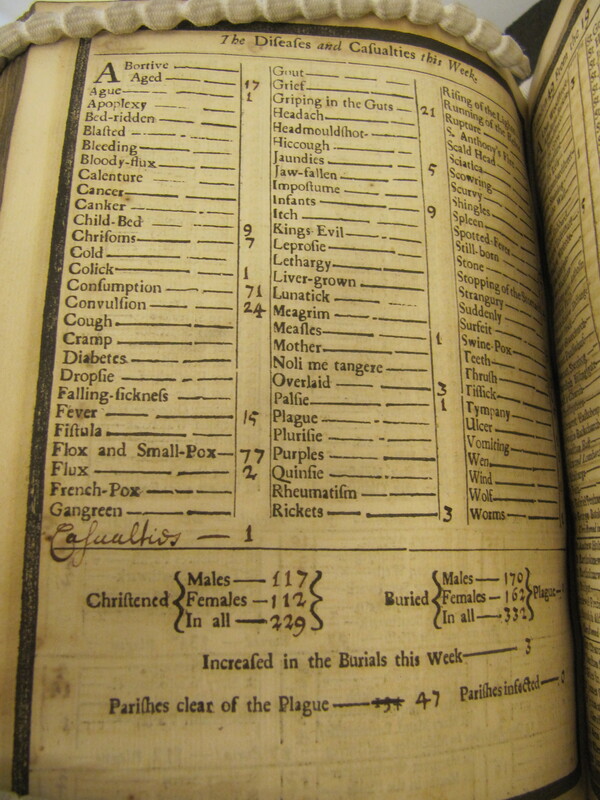 The Diſeaſes and Caſualties this Week
ABortive
Aged — 17
Ague — 1
Apoplexy
Bed-ridden
Blaſted
Bleeding
Bloody-flux
Calenture
Cancer
Canker
Child-Bed — 9
Chriſoms — 7
Cold
Colick — 1
Conſumption — 71
Convulſion — 24
Cough
Cramp
Diabetes
Dropſie
Falling-ſickneſs
Fever — 15
Fiſtula
Flox and Small-Pox — 77
Flux — 2
French-Pox
Gangreen
Caſualties — 1
Gout
Grief
Griping in the Guts — 21
Headach
Headmouldſhot-
Hiccough
Jaundies — 5
Jaw-fallen
Impoſtume
Infants — 9
Itch
Kings-Evil
Leproſie
Lethargy
Liver-grown
Lunatick
Meagrim
Meaſles — 1
Mother
Noli me tangere
Overlaid — 3
Palſie — 1
Plague
Pluriſie
Purples
Quinſie
Rheumatiſm
Rickets — 3
Riſing of the
Running of the
Rupture
S. Anthony's
Scald Head
Sciatica
Scowring
Scurvy
Shingles
Spleen
Spotted-Fever
Still-born
Stone
Stopping of the
Strangury
Suddenly
Surfeit
Swine-Pox
Teeth
Thruſh
Tiſſick
Tympany
Ulcer
Vomiting
Wen
Wind
Wolf
Worms
Chriſtened { Males — 117
Females — 112
In all — 229 }
Buried { Males — 170
Females — 162
In all — 332 } Plague
Increaſed in the Burials this Week — 3
Pariſhes clear of the Plague — 47 Pariſhes infected —